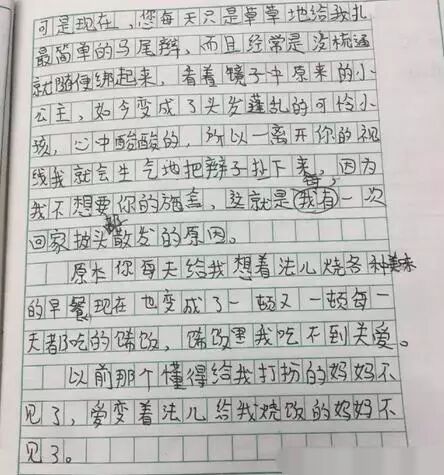 可是现在，您每天只是草草地给我扎
最简单的马尾辫，而且经常是没梳通
就随便绑起来，看着镜子中原来的小
公主，如今变成了头发蓬乱的可怜小
孩，心中酸酸的，所以一离开你的视
线我就会生气地把辫子扯下来，因为
我不想要你的施盖，这就是我有一次
回家披头散发的原因。
原本你每天给我想着法儿烧各种美味
的早餐现在也变成了一顿又一顿每一
天都吃的馊饭，馊饭里我吃不到关爱。
以前那个懂得给我打扮的妈妈不
见了，爱变着法儿给我烧饭的妈妈不
见了。